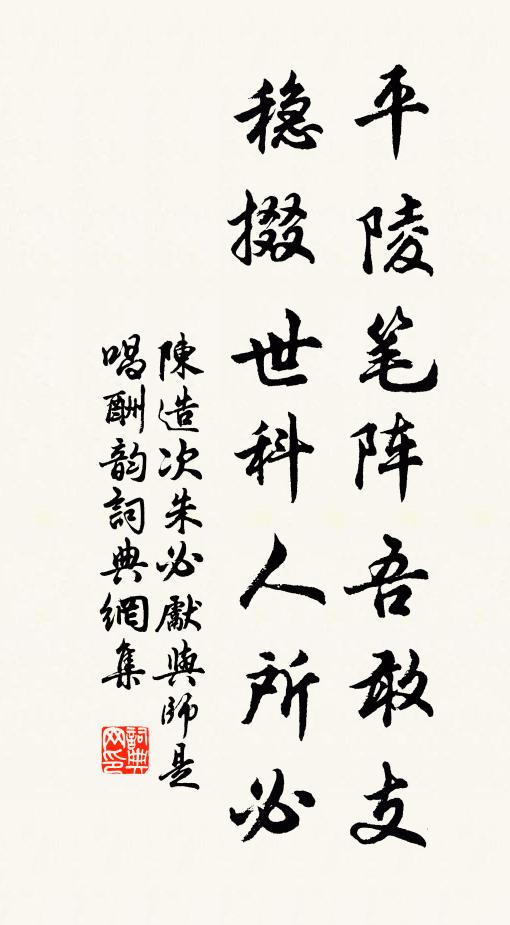 平陵笔阵吾敢支
稳掇世科人所必
陳造次朱必獻與師是
唱酬韵詞典網集
詞典网印